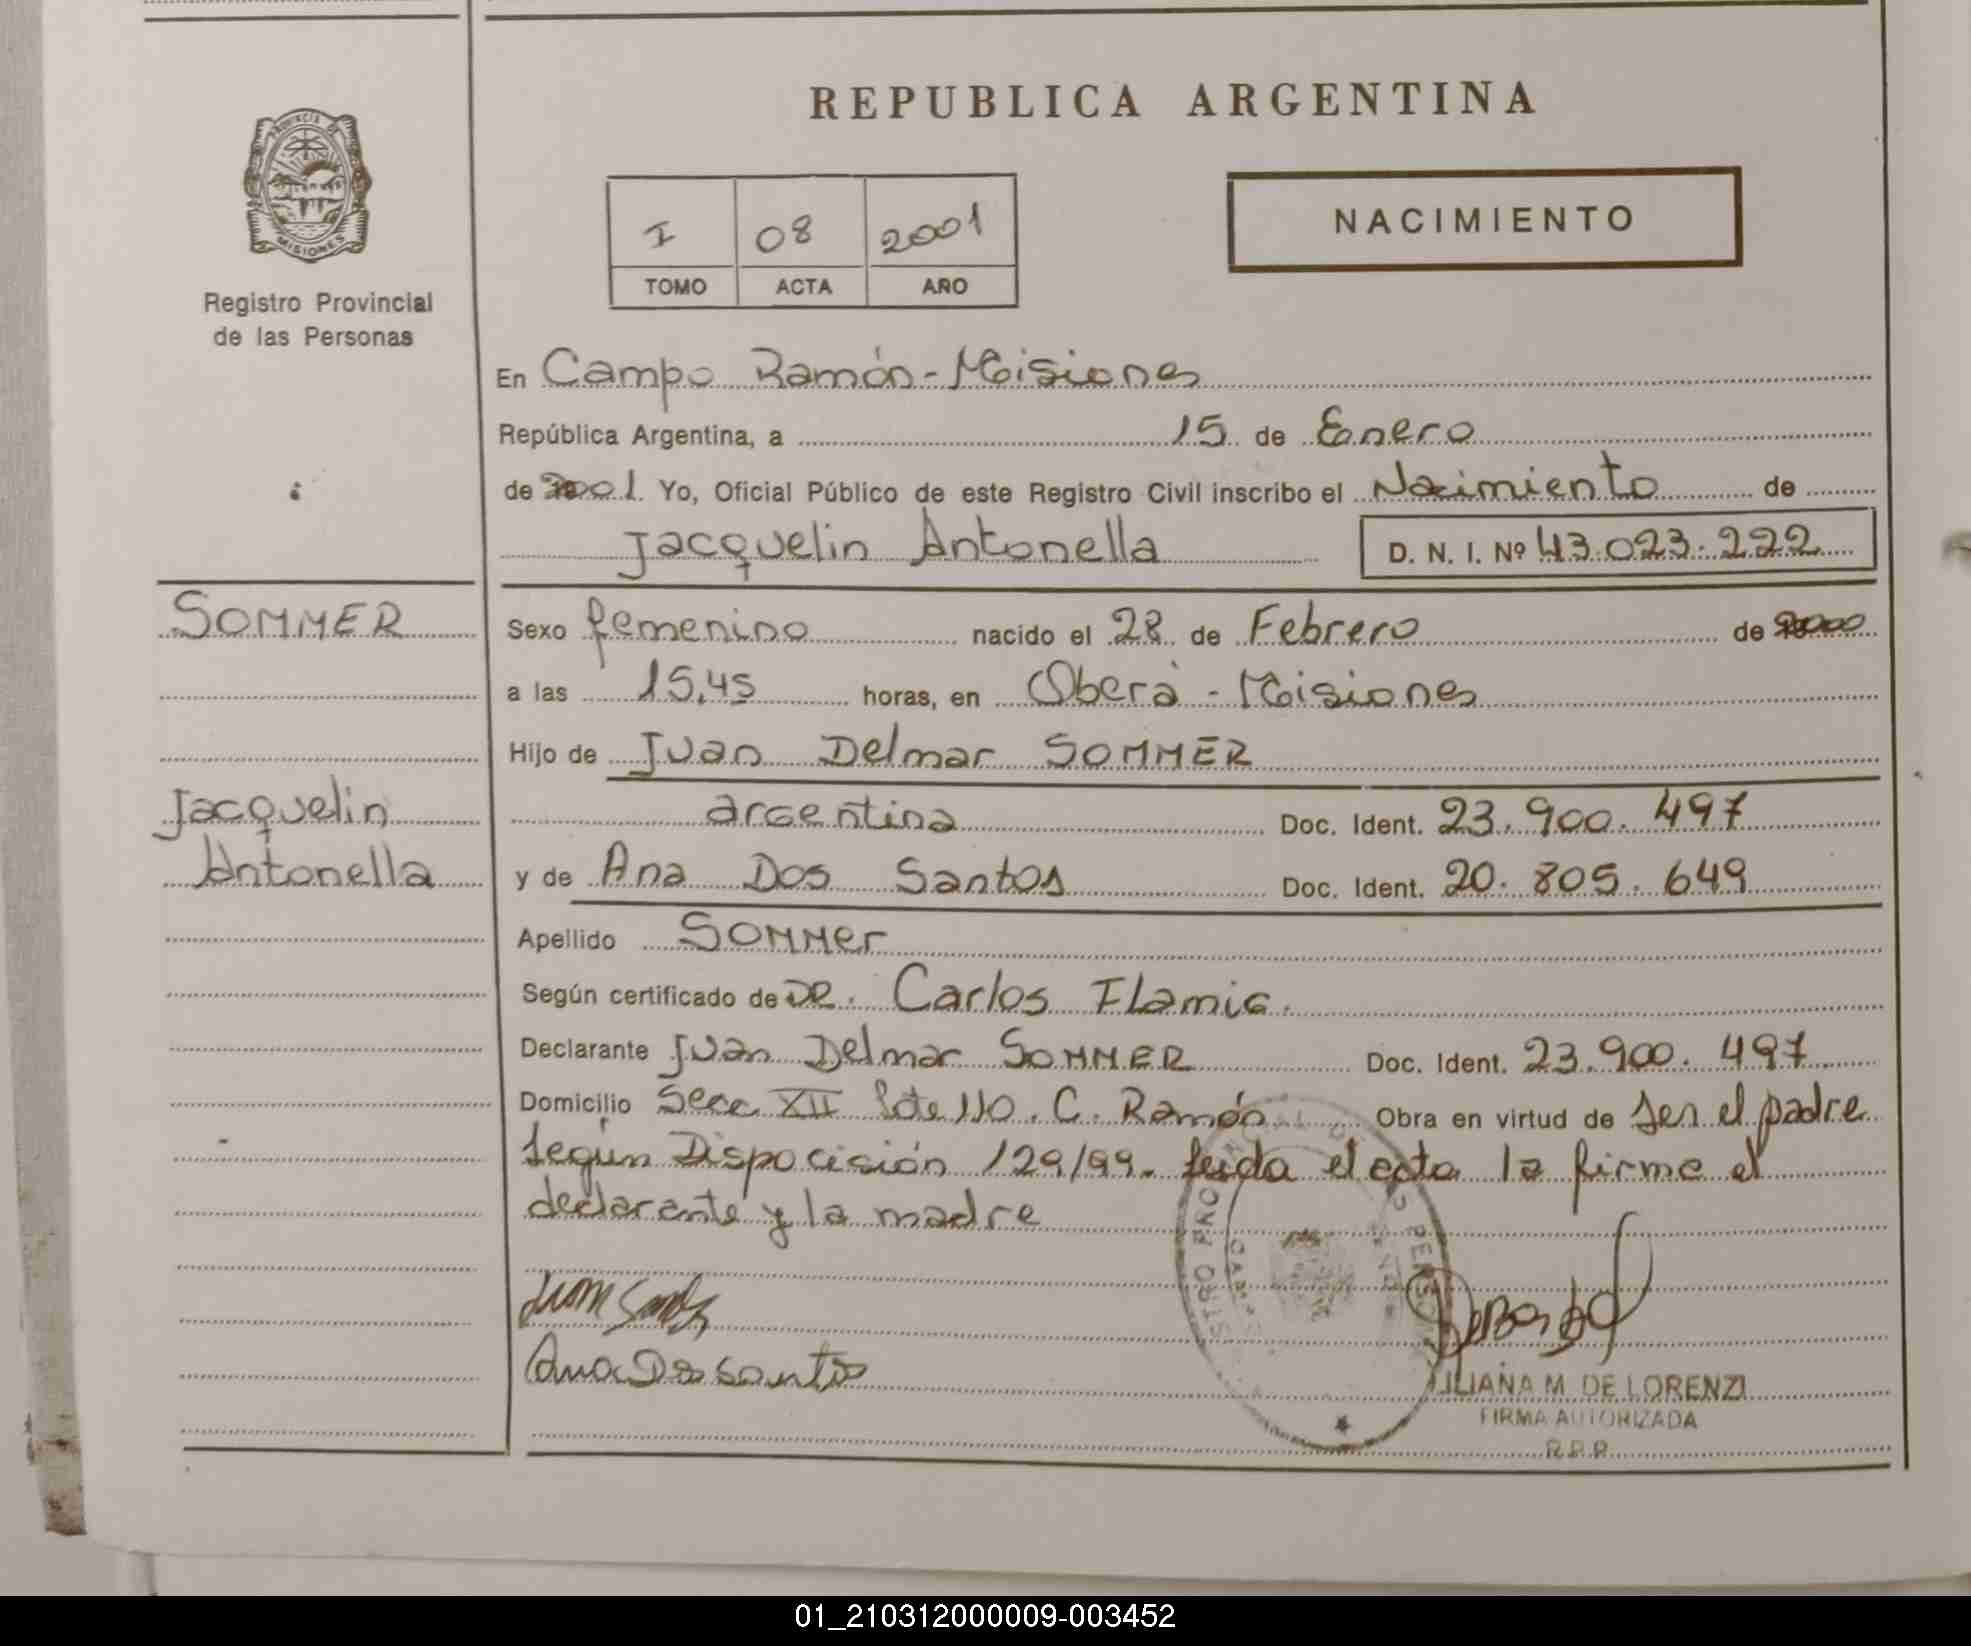 REPUBLICA ARGENTINA
PROVINCIA DE
MISIONES
Registro Provincial
de las Personas
I 08 2001
TOMO ACTA AÑO
NACIMIENTO
En Campo Ramón - Misiones
República Argentina, a 15 de Enero
de 2001. Yo, Oficial Público de este Registro Civil inscribo el Nacimiento de
Jacquelin Antonella D. N. I. Nº 43.023.222
SOMMER
Sexo femenino nacido el 28 de Febrero de 2000
a las 15,45 horas, en Oberà - Misiones
Hijo de Juan Delmar SOMMER
Jacquelin
Antonella
argentina Doc. Ident. 23.900.497
y de Ana Dos Santos Doc. Ident. 20.805.649
Apellido SOMMEr
Según certificado de DR. Carlos
Declarante Juan Delmar SOMMER Doc. Ident. 23.900.497
Domicilio Secc XII lote 110. C. Ramón Obra en virtud de ser el padre
según Disposición 129/99. leída el acta la firma el
declarante y la madre
Ana Dos Santos
LILIANA M. DE LORENZI
FIRMA AUTORIZADA
R.P.P.
01_210312000009-003452